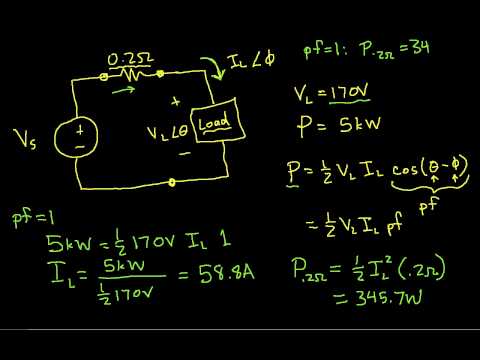 0.2Ω
I_L∠ϕ
pf=1: P.2Ω = 34
+
V_L∠θ
Load
−
V_s
+
−
V_L = 170V
P = 5kW
P = ½ V_L I_L cos(θ−ϕ)
pf
= ½ V_L I_L pf
pf=1
5kW = ½ 170V I_L 1
I_L = 5kW / ½ 170V = 58.8A
P.2Ω = ½ I_L² (.2Ω)
= 345.7W